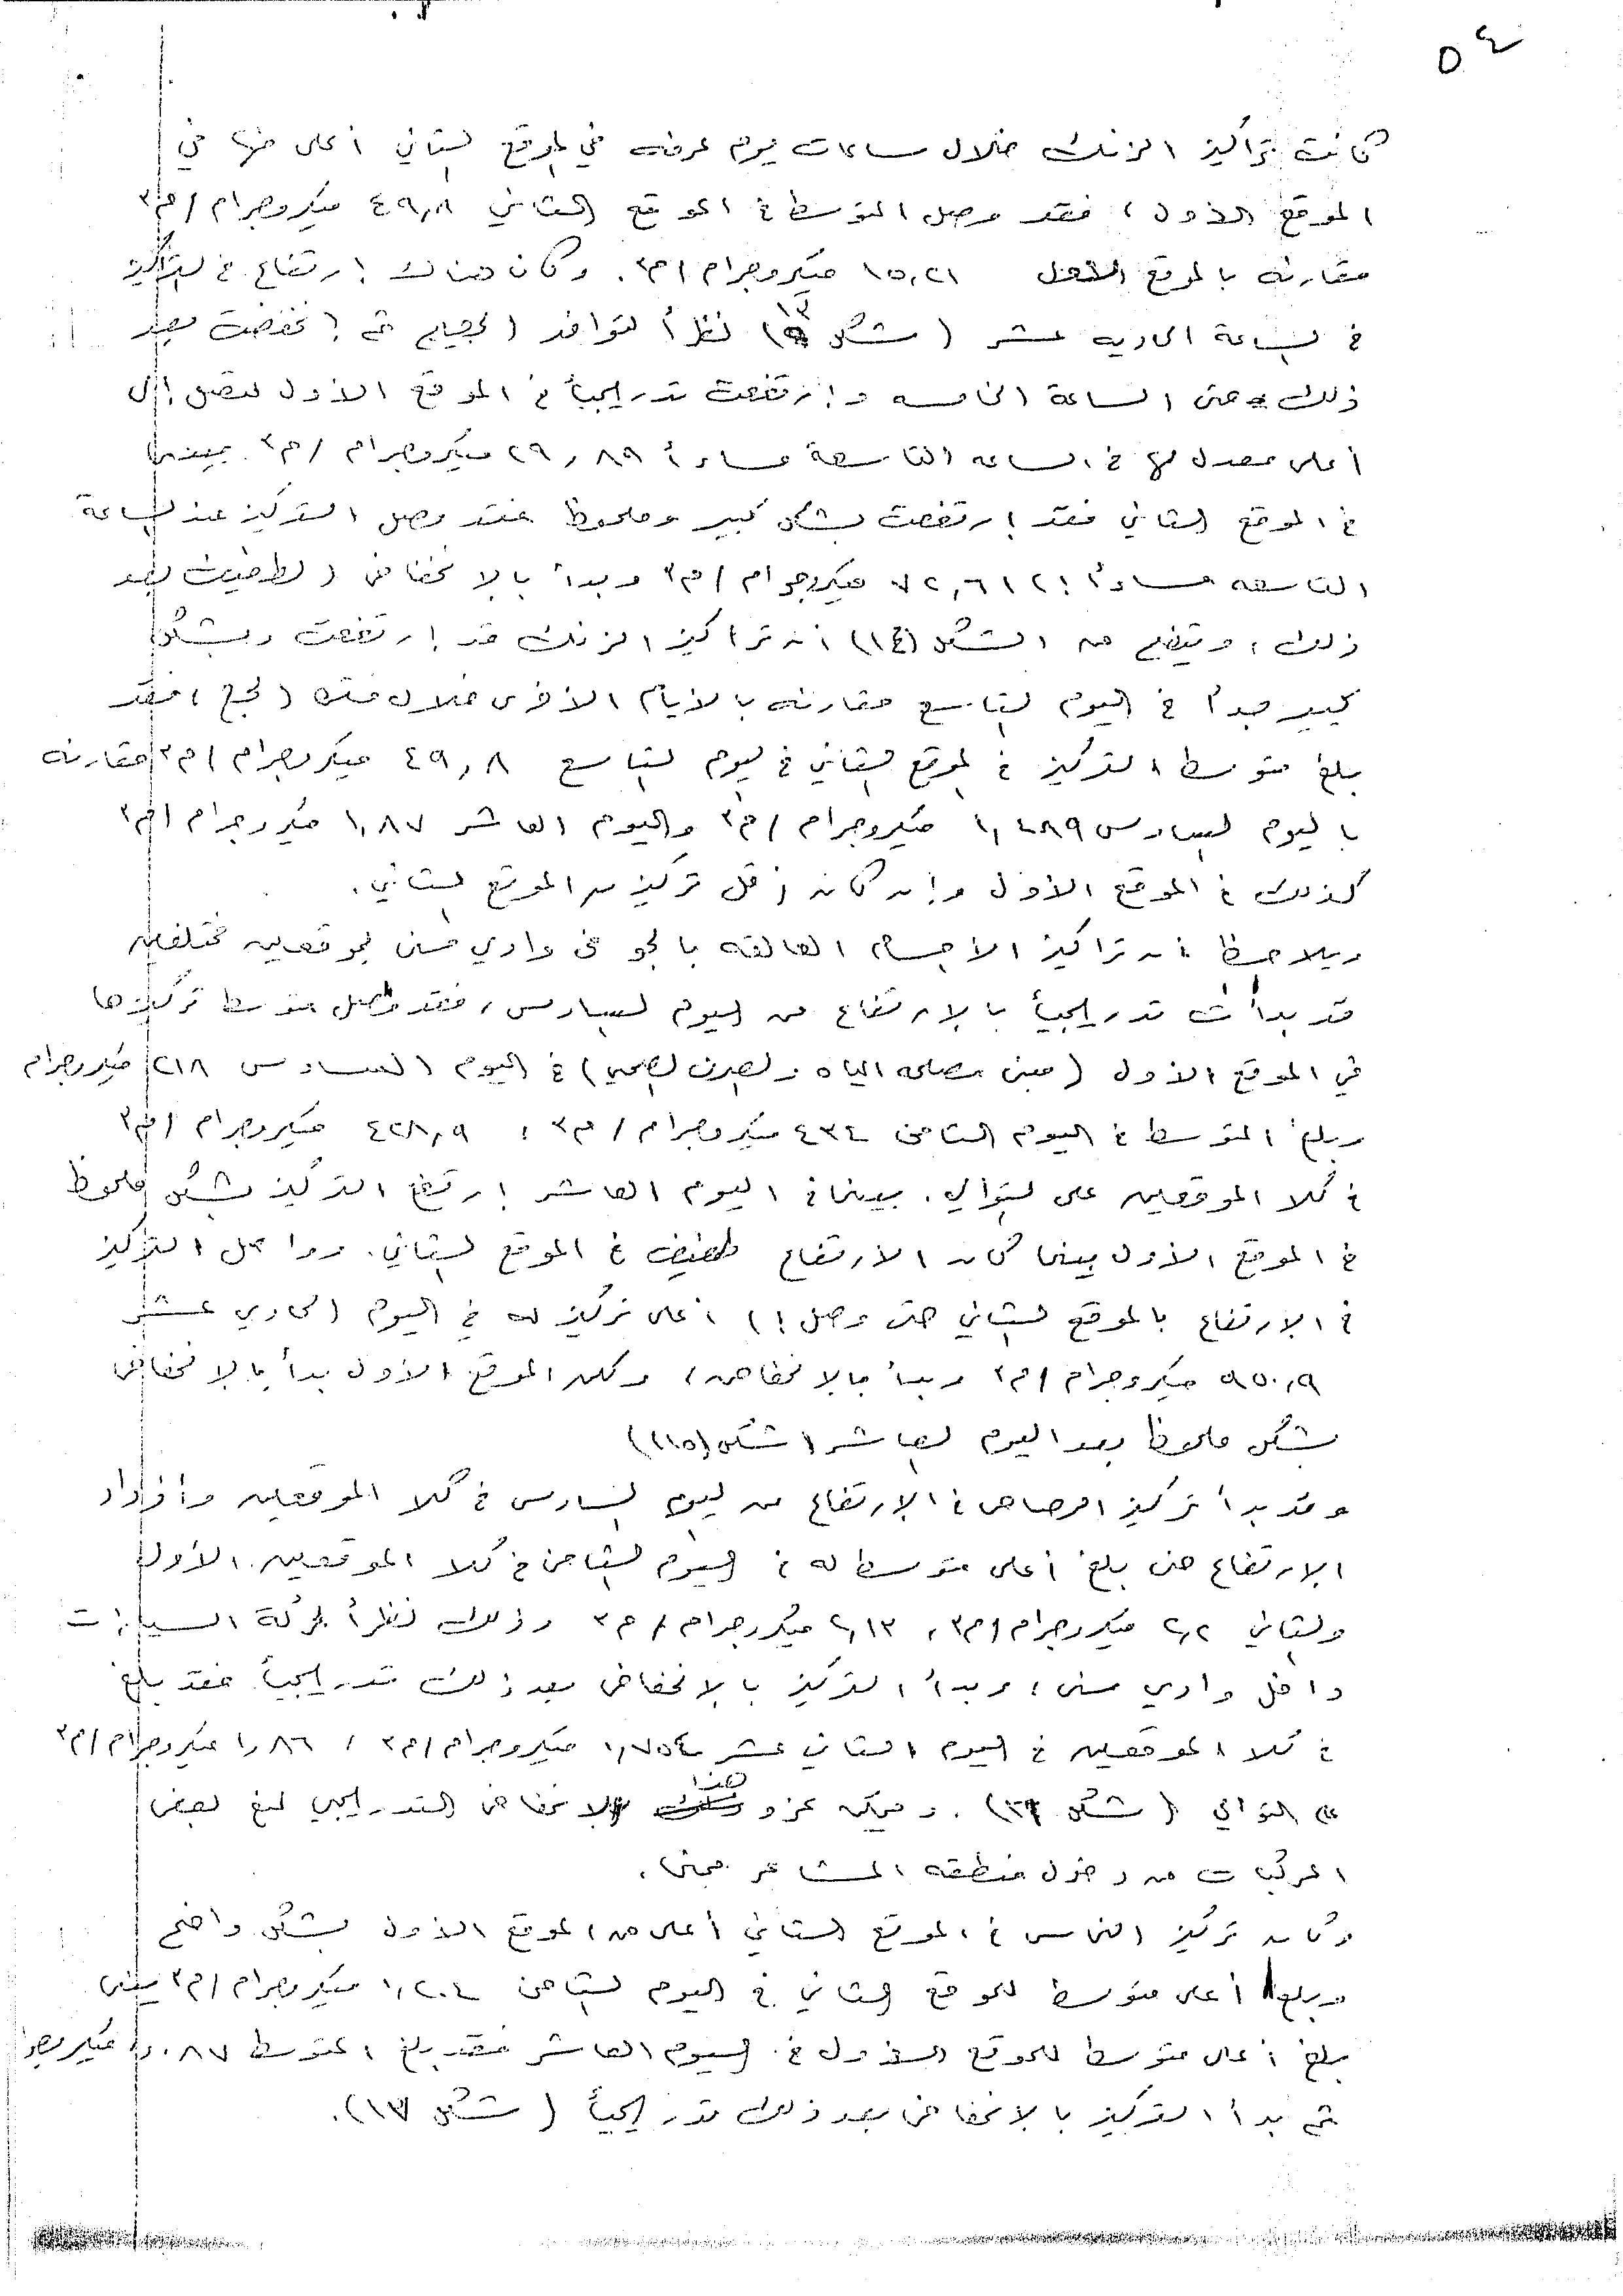 ٥٤
كانت تراكيز الزنك خلال ساعات يوم عرفه في الموقع الثاني أعلى منها في
الموقع الأول ، فقد وصل المتوسط في الموقع الثاني ٤٩,٨ ميكروجرام /م٣
مقارنه بالموقع الأول ١٥,٢١ ميكروجرام /م٣. وكان هناك إرتفاع في التراكيز
في الساعة الحاديه عشر (شكل ١٣) نظراً لتوافد الحجيج ثم إنخفضت بعد
ذلك حتى الساعة الخامسه وإرتفعت تدريجياً في الموقع الأول لتصل إلى
أعلى معدل لها في الساعه التاسعة مساءاً ٢٩,٨٩ ميكروجرام /م٣ بينما
في الموقع الثاني فقد إرتفعت بشكل كبير وملحوظ فقد وصل التركيز عند الساعة
التاسعه مساءاً إلى ٧٢,٦١ ميكروجرام /م٣ وبدأ بالإنخفاض الطفيف بعد
ذلك ، ويتضح من الشكل (١٤) أن تراكيز الزنك قد إرتفعت وبشكل
كبير جداً في اليوم التاسع مقارنه بالأيام الأخرى خلال فترة الحج ، فقد
بلغ متوسط التركيز في الموقع الثاني في اليوم التاسع ٤٩,٨ ميكروجرام /م٣ مقارنه
باليوم السادس ١,٤٨٩ ميكروجرام /م٣ واليوم العاشر ١,٨٧ ميكروجرام /م٣
كذلك في الموقع الأول وإن كان أقل تركيز من الموقع الثاني.
ويلاحظ أن تراكيز الأجسام العالقه بالجو في وادي منى لموقعين مختلفين
قد بدأت تدريجياً بالإرتفاع من اليوم السادس ، فقد وصل متوسط تركيزها
في الموقع الأول (مبنى مصلحه المياه والصرف الصحي) في اليوم السادس ٢١٨ ميكروجرام
وبلغ المتوسط في اليوم الثامن ٤٣٤ ميكروجرام /م٣ ، ٤٢٨,٩ ميكروجرام /م٣
في كلا الموقعين على التوالي. بينما في اليوم العاشر إرتفع التركيز بشكل ملحوظ
في الموقع الأول بينما كان الأرتفاع طفيف في الموقع الثاني. وواصل التركيز
في الإرتفاع بالموقع الثاني حتى وصل إلى أعلى تركيز له في اليوم الحادي عشر
٩٥٠,٩ ميكروجرام /م٣ وبدأ بالإنخفاض ، ولكن الموقع الأول بدأ بالإنخفاض
بشكل ملحوظ بعد اليوم العاشر (شكل (١٥))
وقد بدأ تركيز الرصاص في الإرتفاع من اليوم السادس في كلا الموقعين وأزداد
الإرتفاع حتى بلغ أعلى متوسط له في اليوم الثامن في كلا الموقعين الأول
والثاني ٢,٢ ميكروجرام /م٣ ، ٢,١٣ ميكروجرام /م٣ وذلك نظراً لحركة السيارات
داخل وادي منى ، وبدأ التركيز بالإنخفاض بعد ذلك تدريجياً فقد بلغ
في كلا الموقعين في اليوم الثاني عشر ١,٧٥٤ ميكروجرام /م٣ ، ١,٨٦ ميكروجرام /م٣
على التوالي (شكل ١٦). ويمكن عزو هذا الإنخفاض التدريجي لمنع بعض
المركبات من دخول منطقه المشاعر بمنى.
وكان تركيز النحاس في الموقع الثاني أعلى من الموقع الأول بشكل واضح
وبلغ أعلى متوسط للموقع الثاني في اليوم الثامن ١,٢٠٤ ميكروجرام /م٣ بينما
بلغ أعلى متوسط للموقع الأول في اليوم العاشر فقد بلغ المتوسط ٠,٨٧ ميكروجرام
ثم بدأ التركيز بالإنخفاض بعد ذلك تدريجياً (شكل ١٧).